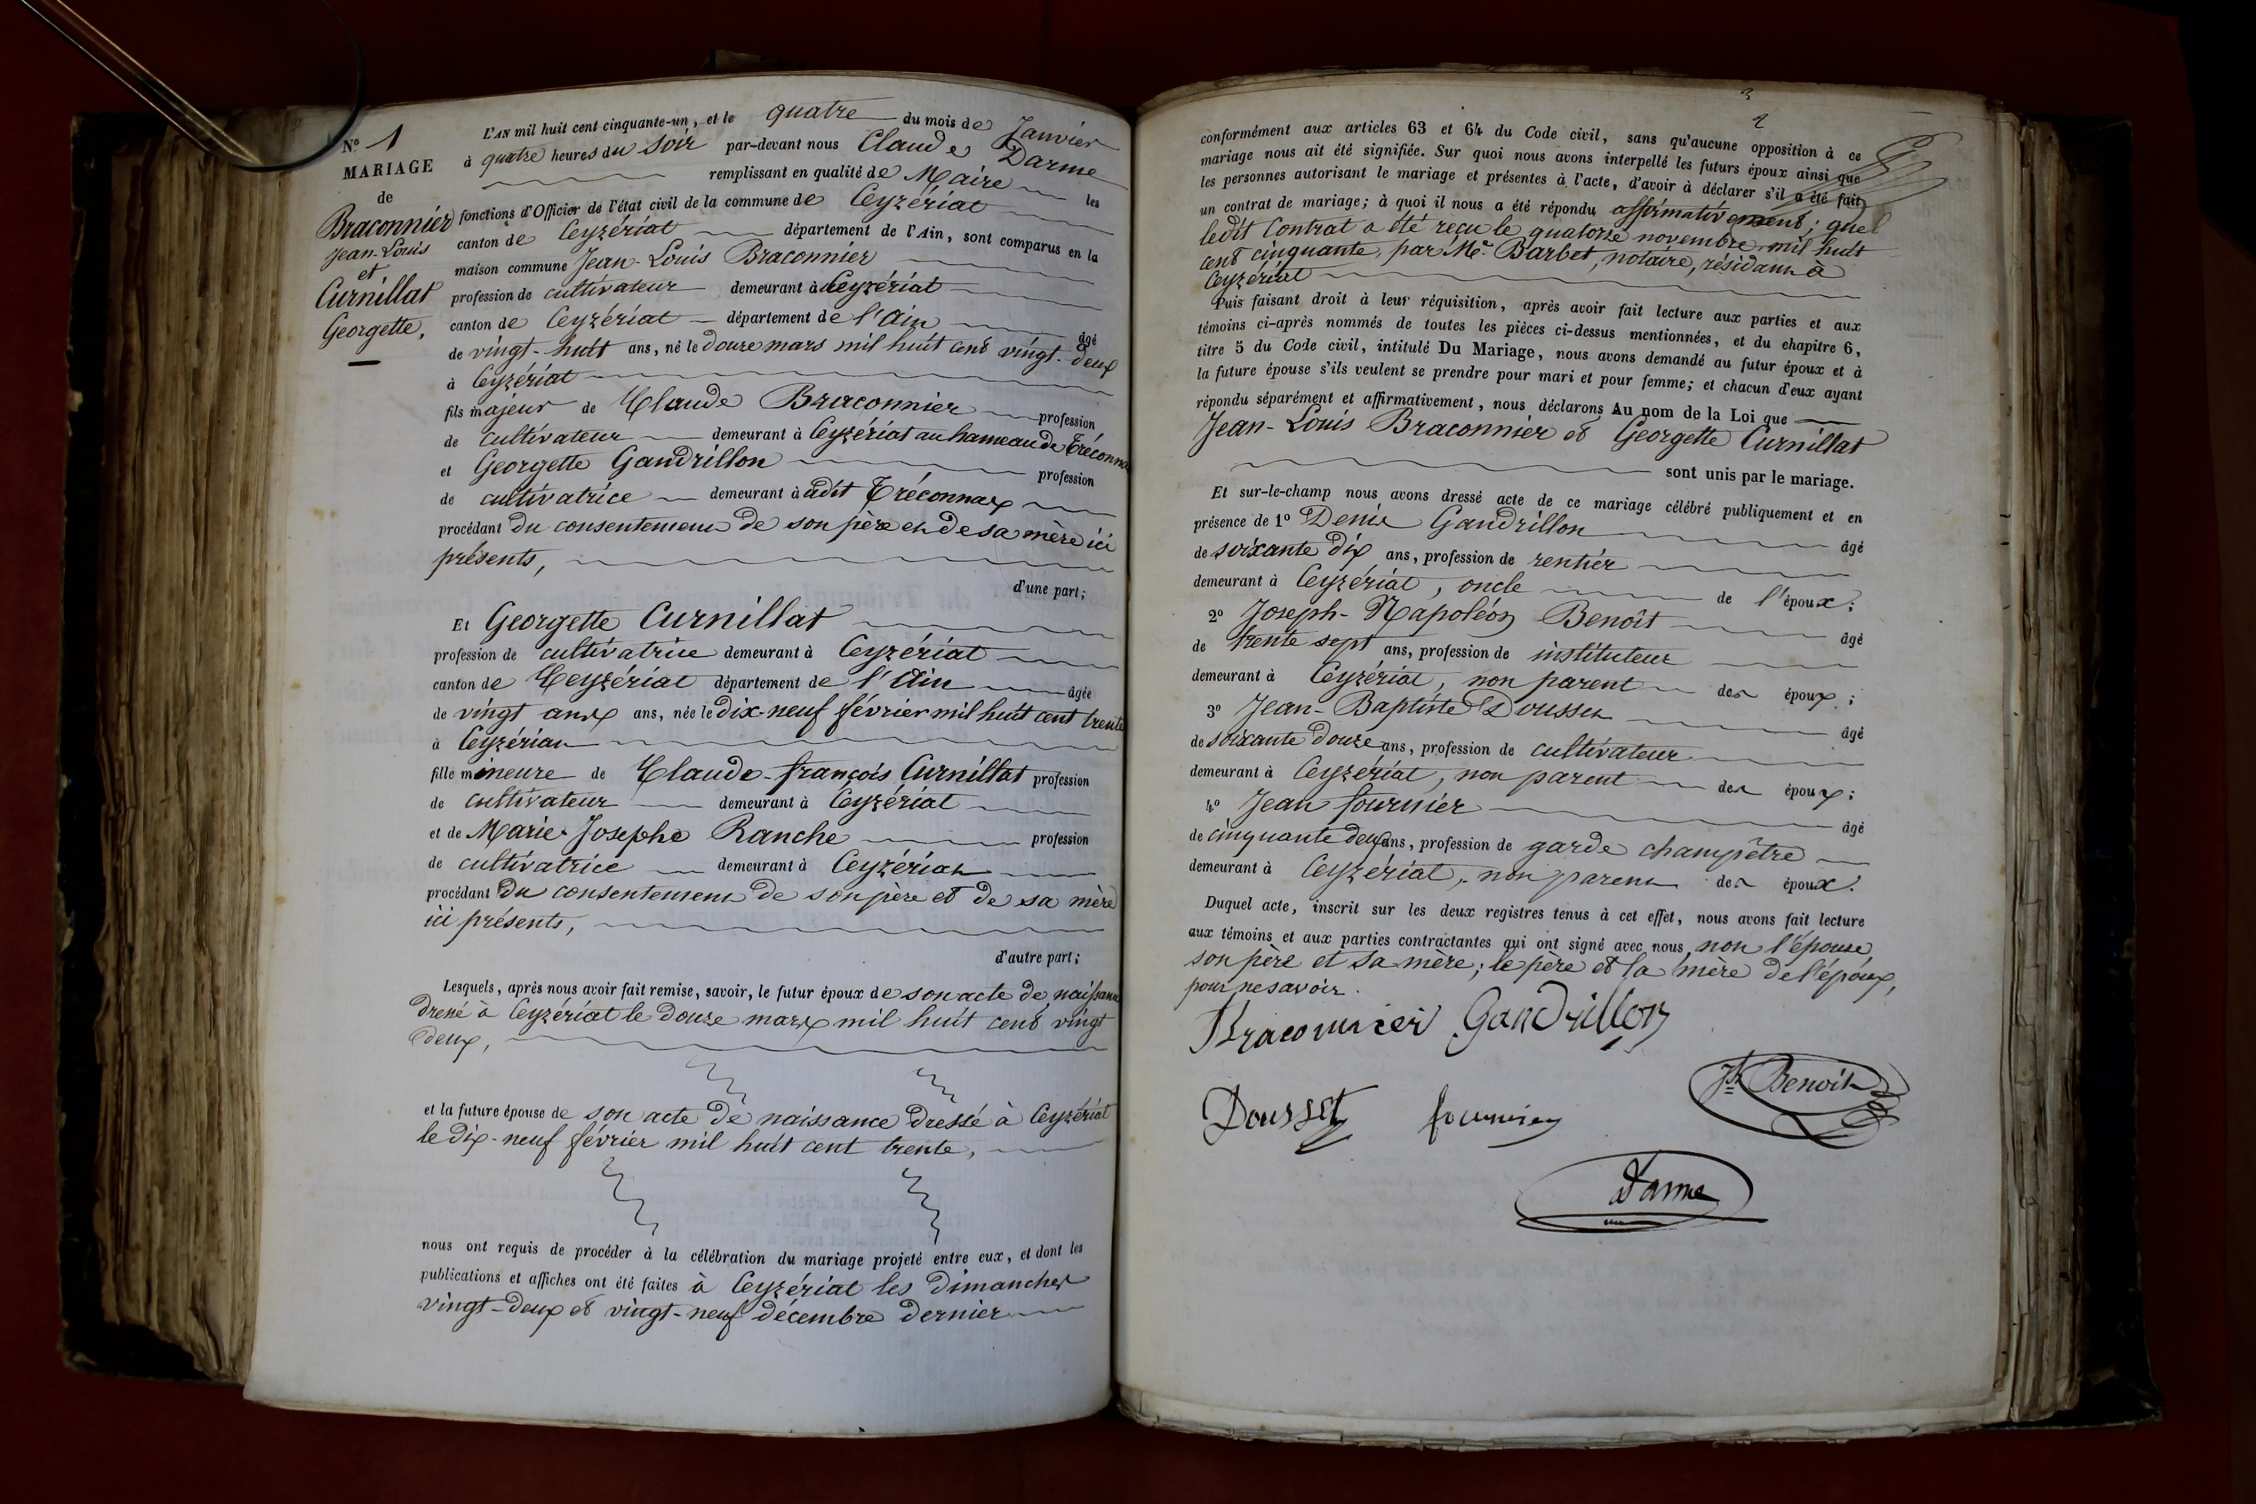 N° 1
MARIAGE
de
Braconnier
Jean-Louis
et
Curnillat
Georgette,
L'AN mil huit cent cinquante-un, et le quatre du mois de Janvier
à quatre heures du soir par-devant nous Claude Darme
remplissant en qualité de Maire les
fonctions d'Officier de l'état civil de la commune de Ceyzériat
canton de Ceyzériat département de l'Ain, sont comparus en la
maison commune Jean-Louis Braconnier
profession de cultivateur demeurant à Ceyzériat
canton de Ceyzériat département de l'Ain âgé
de vingt-huit ans, né le douze mars mil huit cent vingt-deux
à Ceyzériat
fils majeur de Claude Braconnier profession
de cultivateur demeurant à Ceyzériat au hameau de Tréconnas
et Georgette Gandrillon profession
de cultivatrice demeurant à adit Tréconnas
procédant du consentement de son père et de sa mère ici
présents,
d'une part;
Et Georgette Curnillat
profession de cultivatrice demeurant à Ceyzériat
canton de Ceyzériat département de l'Ain âgée
de vingt ans ans, née le dix-neuf février mil huit cent trente
à Ceyzériat
fille mineure de Claude-françois Curnillat profession
de cultivateur demeurant à Ceyzériat
et de Marie Josephe Ranche profession
de cultivatrice demeurant à Ceyzériat
procédant du consentement de son père et de sa mère
ici présents,
d'autre part;
Lesquels, après nous avoir fait remise, savoir, le futur époux de son acte de naissance
dressé à Ceyzériat le douze mars mil huit cent vingt
deux,
et la future épouse de son acte de naissance dressé à Ceyzériat
le dix-neuf février mil huit cent trente,
nous ont requis de procéder à la célébration du mariage projeté entre eux, et dont les
publications et affiches ont été faites à Ceyzériat les dimanches
vingt-deux et vingt-neuf décembre dernier
2
conformément aux articles 63 et 64 du Code civil, sans qu'aucune opposition à ce
mariage nous ait été signifiée. Sur quoi nous avons interpellé les futurs époux ainsi que
les personnes autorisant le mariage et présentes à l'acte, d'avoir à déclarer s'il a été fait
un contrat de mariage; à quoi il nous a été répondu affirmativement; que
ledit Contrat a été reçu le quatorze novembre mil huit
cent cinquante, par Me Barbet, notaire, résidant à
Ceyzériat
Puis faisant droit à leur réquisition, après avoir fait lecture aux parties et aux
témoins ci-après nommés de toutes les pièces ci-dessus mentionnées, et du chapitre 6,
titre 5 du Code civil, intitulé Du Mariage, nous avons demandé au futur époux et à
la future épouse s'ils veulent se prendre pour mari et pour femme; et chacun d'eux ayant
répondu séparément et affirmativement, nous déclarons Au nom de la Loi que
Jean-Louis Braconnier et Georgette Curnillat
sont unis par le mariage.
Et sur-le-champ nous avons dressé acte de ce mariage célébré publiquement et en
présence de 1° Denis Gandrillon âgé
de soixante dix ans, profession de rentier
demeurant à Ceyzériat, oncle de l'époux;
2° Joseph-Napoléon Benoît âgé
de trente sept ans, profession de instituteur
demeurant à Ceyzériat, non parent des époux;
3° Jean-Baptiste Dousset âgé
de soixante douze ans, profession de cultivateur
demeurant à Ceyzériat, non parent des époux;
4° Jean fournier âgé
de cinquante deux ans, profession de garde champêtre
demeurant à Ceyzériat, non parent des époux.
Duquel acte, inscrit sur les deux registres tenus à cet effet, nous avons fait lecture
aux témoins et aux parties contractantes qui ont signé avec nous, non l'épouse
son père et sa mère; le père et la mère de l'époux,
pour ne savoir.
Braconnier Gandrillon
Jh Benoit
Dousset fournier
Darme